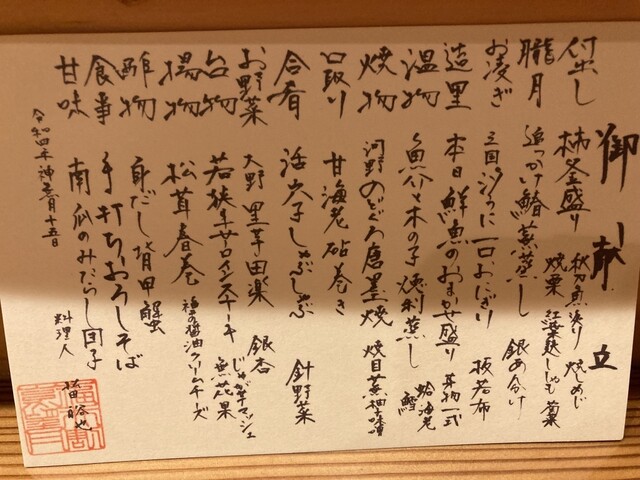 御献立
付出し 柿釜盛り 秋刀魚浸り 焼しめじ
焼栗 紅葉麩 しゃも 菊菜
朧月 追っかけ鱧蒸し 銀あん掛け
お凌ぎ 三国汐うに一口おにぎり 板若布
造里 本日鮮魚のおまかせ盛り 妻物一式
温物 魚介と木の子徳利蒸し 蛤 海老
鱧
焼物 河野のどぐろ唐墨焼 焼目 黄柚味噌
口取り 甘海老砧巻き
合肴 活穴子しゃぶしゃぶ 針野菜
お野菜 大野里芋田楽 銀杏
台物 若狭牛サーロインステーキ じゃが芋マッシュ
無花果
揚物 松茸春巻 福の醤油クリームチーズ
酢物 身だし背甲蟹
食事 手打ちおろしそば
甘味 南瓜のみたらし団子
令和四年神無月十五日
料理人